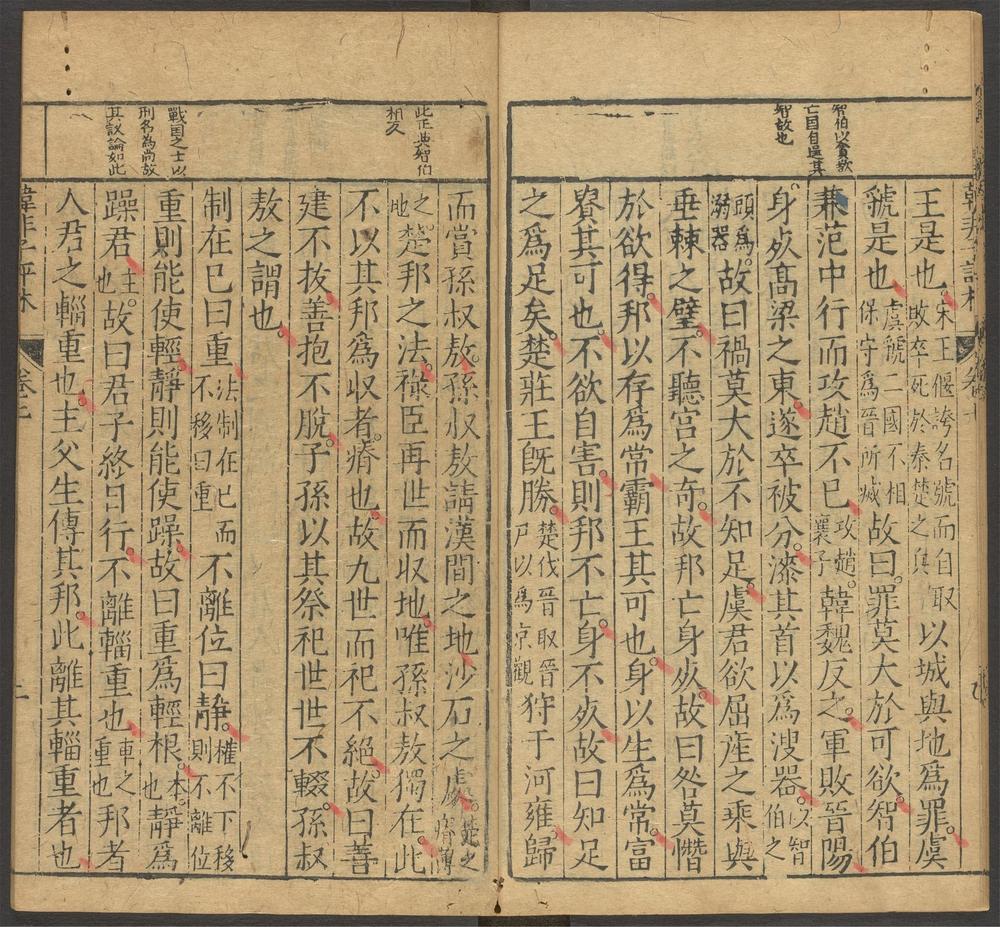 智伯以貪欲
亡国自過其
智故也
王是也。宋王偃誇名號而自取
敗卒死於秦楚之與
以城與地爲罪。虞
虢是也。虞虢二國不相
保守爲晉所滅
故曰。罪莫大於可欲。智伯
兼范中行而攻趙不已。攻趙
襄子
韓魏反之。軍敗晉陽。
身死高梁之東。遂卒被分。漆其首以爲溲器。以智
伯之
頭爲
溺器
故曰禍莫大於不知足。虞君欲屈產之乘與
垂棘之璧。不聽宮之奇。故邦亡身死。故曰咎莫憯
於欲得。邦以存爲常。霸王其可也。身以生爲常。富
貴其可也。不欲自害。則邦不亡。身不死。故曰知足
之爲足矣。楚莊王既勝。楚伐晉取晉
尸以爲京觀
狩于河雍。歸
此正與智伯
相反
戰国之士以
刑名為尚故
其議論如此
而賞孫叔敖。孫叔敖請漢間之地沙石之處。楚之
瘠薄
之
地
楚邦之法。祿臣再世而收地。唯孫叔敖獨在。此
不以其邦爲收者。瘠也。故九世而祀不絕。故曰善
建不拔。善抱不脫。子孫以其祭祀世世不輟。孫叔
敖之謂也。
制在已曰重。法制在已而
不移曰重
不離位曰靜。權不下移
則不離位
重則能使輕。靜則能使躁。故曰重爲輕根。本
也
靜爲
躁君。主
也
故曰君子終日行。不離輜重也。車之
重也
邦者
人君之輜重也。主父生傳其邦。此離其輜重者也
韓非子評林
卷七